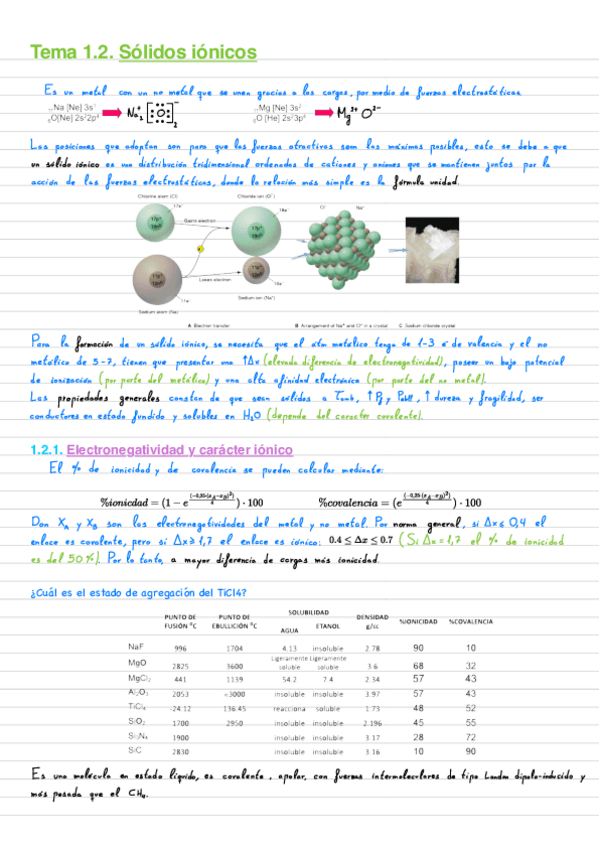 Tema 1.2. Sólidos iónicos
Es un metal con un no metal que se unen gracias a las cargas, por medio de fuerzas electrostáticas.
₁₁Na [Ne] 3s¹ → Na₂⁺ [:O:]₂⁻ ₁₂Mg [Ne] 3s² → Mg²⁺ O²⁻
₈O[Ne] 2s²2p⁴ ₈O [He] 2s²3p⁴
Las posiciones que adoptan son para que las fuerzas atractivas sean las máximas posibles, esto se debe a que
un sólido iónico es una distribución tridimensional ordenados de cationes y aniones que se mantienen juntos por la
acción de las fuerzas electrostáticas, donde la relación más simple es la fórmula unidad.
Chlorine atom (Cl) Chloride ion (Cl⁻)
17e⁻ 18e⁻ Cl⁻ Na⁺
17p⁺ 17p⁺
18n⁰ 18n⁰
Gains electron
e⁻
Loses electron
11p⁺ 11p⁺
12n⁰ 12n⁰
10e⁻
11e⁻ Sodium ion (Na⁺)
Sodium atom (Na)
A Electron transfer B Arrangement of Na⁺ and Cl⁻ in a crystal C Sodium chloride crystal
Para la formación de un sólido iónico, se necesita que el átm metálico tenga de 1-3 é de valencia y el no
metálico de 5-7, tienen que presentar una ↑Δx (elevada diferencia de electronegatividad), poseer un bajo potencial
de ionización (por parte del metálico) y una alta afinidad electrónica (por parte del no metal).
Las propiedades generales constan de que sean sólidos a Tamb, ↑ Pf y Pebull, ↑ dureza y fragilidad, ser
conductores en estado fundido y solubles en H₂O (depende del caracter covalente).
1.2.1. Electronegatividad y carácter iónico
El % de ionicidad y de covalencia se pueden calcular mediante:
%ionicdad = (1 − e^((−0,35·(xA−xB)²)/4)) · 100 %covalencia = (e^((−0,35·(xA−xB)²)/4)) · 100
Don XA y XB son las electronegatividades del metal y no metal. Por norma general, si Δx ≤ 0,4 el
enlace es covalente, pero si Δx ≥ 1,7 el enlace es iónico: 0.4 ≤ Δx ≤ 0.7 (Si Δx = 1,7 el % de ionicidad
es del 50%). Por lo tanto, a mayor diferencia de cargas más ionicidad.
¿Cuál es el estado de agregación del TiCl4?
PUNTO DE FUSIÓN ºC PUNTO DE EBULLICIÓN ºC SOLUBILIDAD AGUA ETANOL DENSIDAD g/cc %IONICIDAD %COVALENCIA
NaF 996 1704 4.13 insoluble 2.78 90 10
MgO 2825 3600 Ligeramente soluble Ligeramente soluble 3.6 68 32
MgCl₂ 441 1139 54.2 7.4 2.34 57 43
Al₂O₃ 2053 +3000 insoluble insoluble 3.97 57 43
TiCl₄ -24.12 136.45 reacciona soluble 1.73 48 52
SiO₂ 1700 2950 insoluble insoluble 2.196 45 55
Si₃N₄ 1900 insoluble insoluble 3.17 28 72
SiC 2830 insoluble insoluble 3.16 10 90
Es una molécula en estado líquido, es covalente, apolar, con fuerzas intermoleculares de tipo London dipolo-inducido y
más pesada que el CH₄.